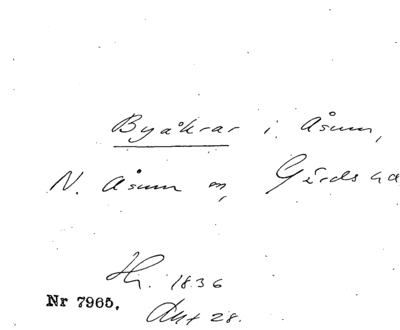 Byåkrar i Åsum,
N. Åsum sn, Gärds hd
Hr. 1836
Nr 7965.
Akt 28.